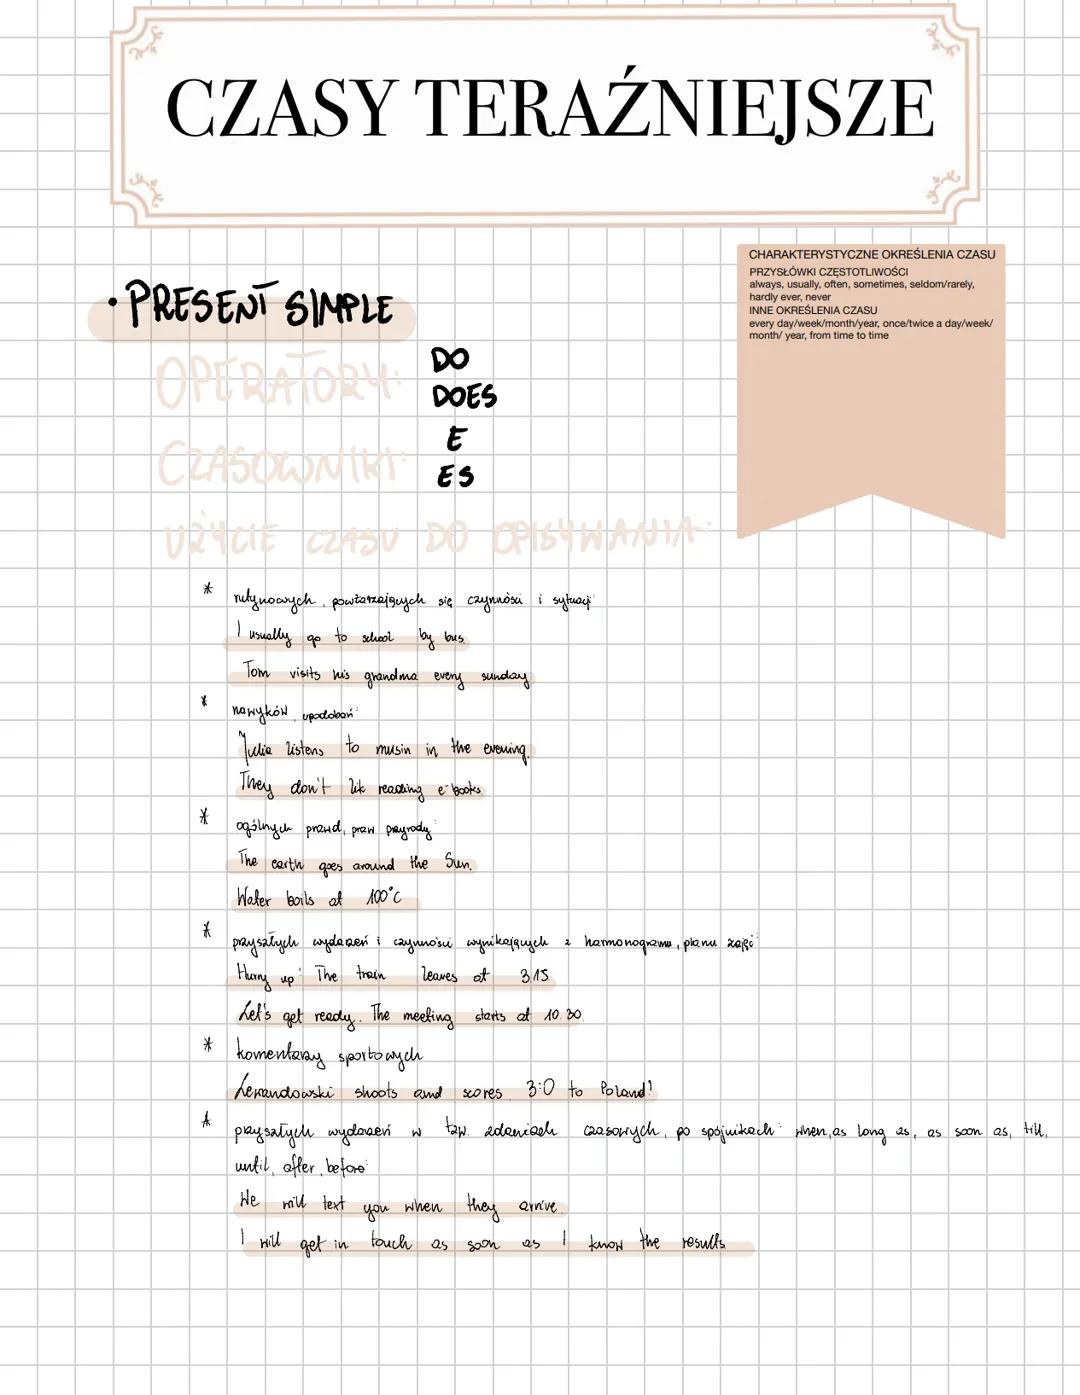 CZASY TERAŹNIEJSZE
CHARAKTERYSTYCZNE OKREŚLENIA CZASU
PRZYSŁÓWKI CZĘSTOTLIWOŚCI
always, usually, often, sometimes, seldom/rarely,
hardly ever, never
INNE OKREŚLENIA CZASU
every day/week/month/year, once/twice a day/week/
month/ year, from time to time
• PRESENT SIMPLE
OPERATORY: DO
DOES
CZASOWNIKI: E
ES
UŻYCIE CZASU DO OPISYWANIA:
* rutynowych, powtarzających się czynności i sytuacji
I usually go to school by bus.
Tom visits his grandma every sunday
* nawyków, upodobań:
Julia listens to musin in the evening.
They don't lik reading e-books
* ogólnych prawd, praw przyrody:
The earth goes around the Sun.
Water boils at 100°C
* przyszłych wydarzeń i czynności wynikających z harmonogramu, planu zajęć:
Hurry up! The train leaves at 3.15
Let's get ready. The meeting starts at 10.30.
* komentarzy sportowych
Lewandowski shoots and scores. 3:0 to Poland!
* przyszłych wydarzeń w tzw. zdaniach czasowych, po spójnikach: when, as long as, as soon as, till,
until, after, before:
We will text you when they arrive.
I will get in touch as soon as I know the results